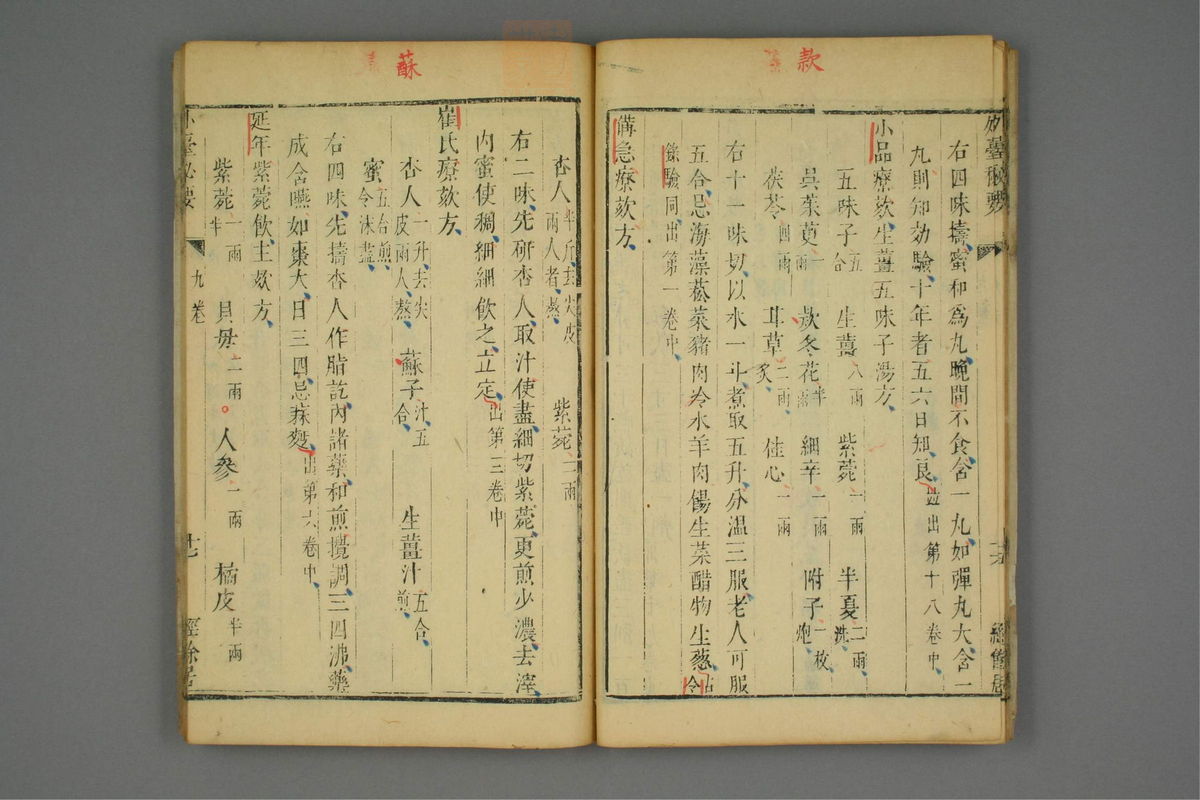 款
右四味擣蜜和爲丸晚間不食含一丸如彈丸大含一
丸則知効驗十年者五六日知良並出第十八卷中
小品療欬生薑五味子湯方
五味子五合 生薑八兩 紫菀一兩 半夏二兩洗
吳茱萸一兩 欬冬花半兩 細辛一兩 附子一枚炮
茯苓四兩 甘草二兩炙 桂心一兩
右十一味切以水一斗煮取五升分溫三服老人可服
五合忌海藻菘菜豬肉冷水羊肉餳生菜醋物生葱古今
錄驗同出第一卷中
備急療欬方
蘇
杏人半斤去尖皮兩人者熬 紫菀二兩
右二味先研杏人取汁使盡細切紫菀更煎少濃去滓
內蜜使稠細細飲之立定出第三卷中
崔氏療欬方
杏人一升去尖皮兩人熬 蘇子汁五合 生薑汁五合煎
蜜五合煎令沫盡
右四味先擣杏人作脂訖內諸藥和煎攪調三四沸藥
成含嚥如棗大日三四忌蔴麵出第六卷中
延年紫菀飲主欬方
紫菀一兩半 貝母二兩 人參一兩 橘皮半兩
九卷
廿七
經餘居